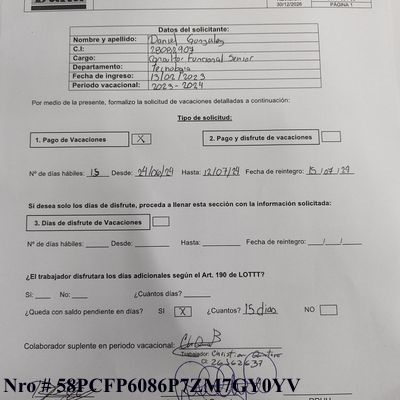 30/12/2026
PÁGINA 1
Datos del solicitante:
Nombre y apellido: Daniel Gonzalez
C.I: 28082907
Cargo: Consultor Funcional Senior
Departamento: Tecnologia
Fecha de ingreso: 13/02/2023
Periodo vacacional: 2023-2024
Por medio de la presente, formalizo la solicitud de vacaciones detalladas a continuación:
Tipo de solicitud:
1. Pago de Vacaciones X 2. Pago y disfrute de vacaciones
Nº de días hábiles: 15 Desde: 24/06/24 Hasta: 12/07/24 Fecha de reintegro: 15/07/24
Si desea solo los días de disfrute, proceda a llenar esta sección con la información solicitada:
3. Días de disfrute de Vacaciones
Nº de días hábiles: Desde: Hasta: Fecha de reintegro: __/__/__
¿El trabajador disfrutara los días adicionales según el Art. 190 de LOTTT?
Sí: No: ¿Cuántos días?
¿Queda con saldo pendiente en días? SI X ¿Cuantos? 15 dias NO
Colaborador suplente en periodo vacacional:
Trabajador: Christian
Nro # 58PCFP6086P7ZM7GY0YV